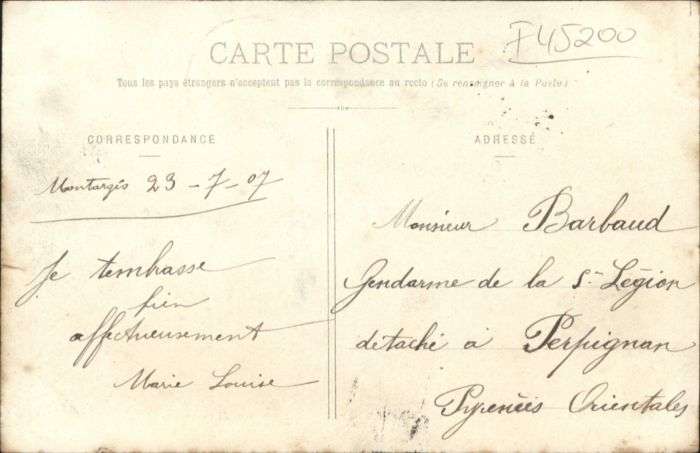 CARTE POSTALE
F45200
Tous les pays étrangers n'acceptent pas la correspondance au recto (Se renseigner à la Poste)
CORRESPONDANCE
Montargis 23-7-07
Je tembrasse
bien
affectueusement
Marie Louise
ADRESSE
Monsieur Barbaud
Gendarme de la 5e Légion
detaché à Perpignan
Pyrenées Orientales